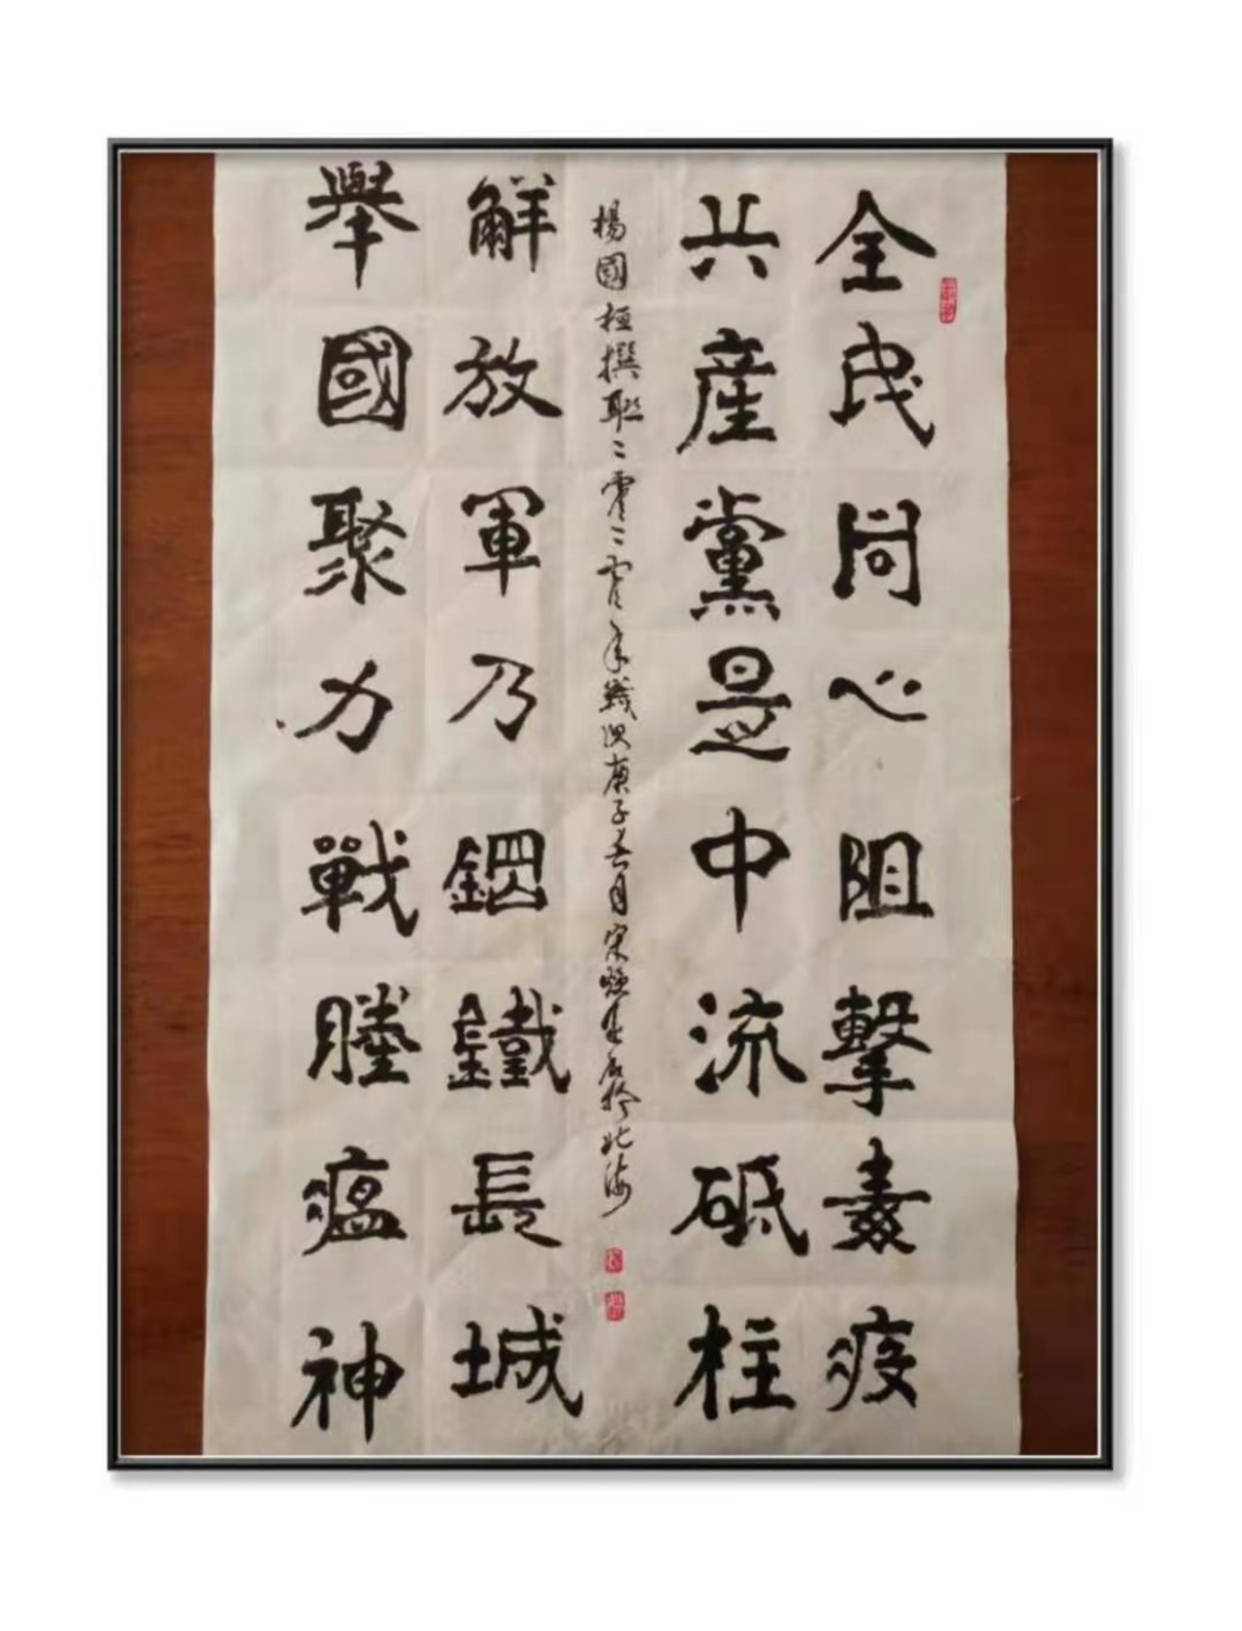 全民同心阻擊毒疫
共産黨是中流砥柱
舉國聚力戰勝瘟神
解放軍乃鋼鐵長城
楊國桓撰聯二零二零年歲次庚子春月宋於北海